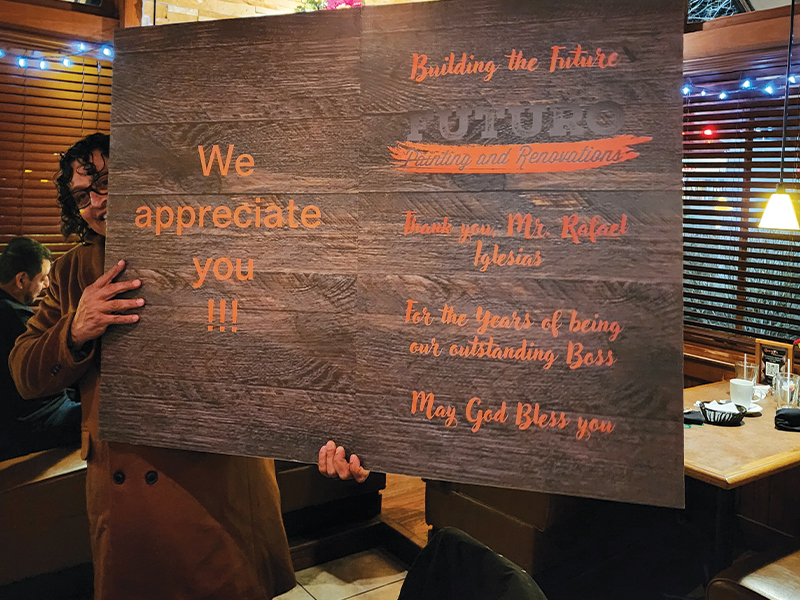 We
appreciate
you
!!!
Building the Future
FUTURO
Painting and Renovations
Thank you, Mr. Rafael
Iglesias
For the Years of being
our outstanding Boss
May God Bless you